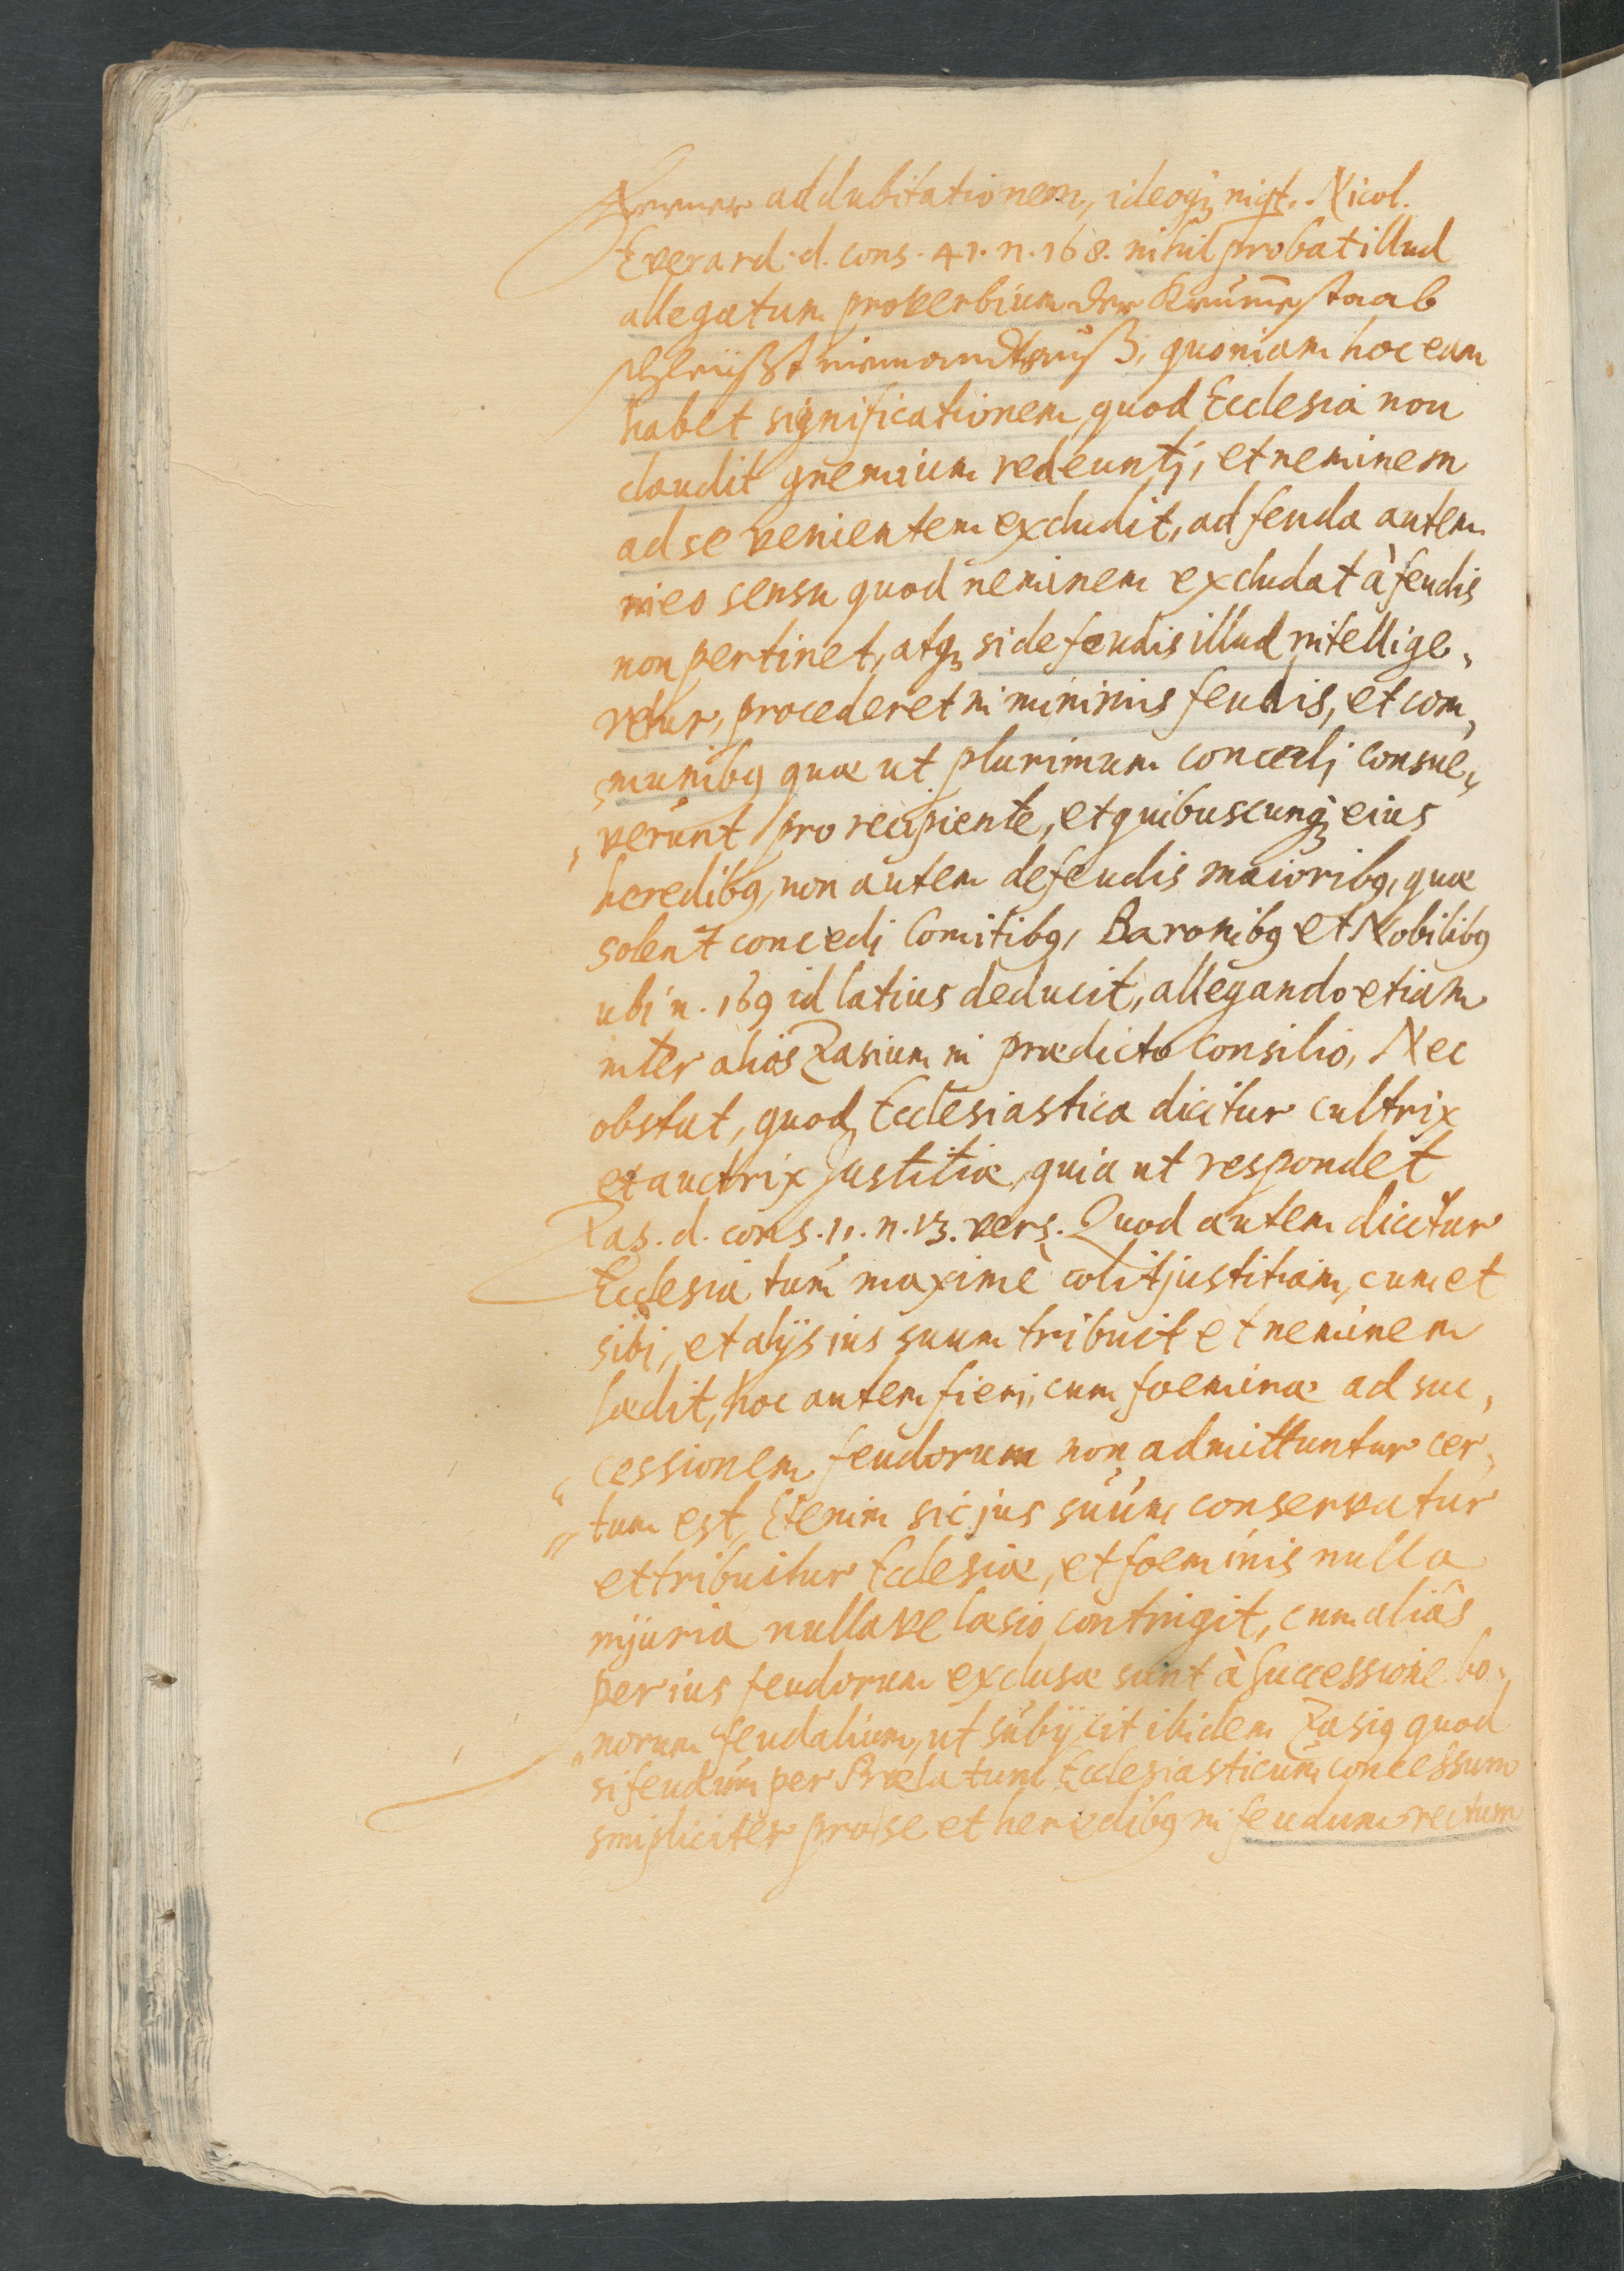 addubitationem, ideoq́ꝫ Nicol.
Everard. d. cons. 41. n. 168. nihil probat illud
allegatum proverbium der Krum̄estaab
schleüßt niemandt auß, quoniam hoc eam
habet significationem, quod Ecclesia non
claudit gremium redeuntj, et neminem
ad se venientem excludit, ad feuda autem
in eo sensu quod neminem excludat à feudis
non pertinet, atqꝫ si de feudis illud intellige,
retur, procederet in minimis feudis, et com,
munibꝰ quæ ut plurimum concedj consue,
verunt pro recipiente, et quibuscunqꝫ eius
heredibꝰ, non autem de feudis maioribꝰ, quæ
solent concedj Comitibꝰ, Baronibꝰ et Nobilibꝰ
ubj n. 169 id latius deducit, allegando etiam
inter alios Zasium in prædicto Consilio, Nec
obstat, quod Ecclesiastica dicitur cultrix
et auctrix Justitiæ, quia ut respondet
Zas. d. cons. 11. n. 13. vers. Quod autem dicitur
Ecclesia tum maximè colit justitiam, cum et
sibj, et alijs ius suum tribuit et neminem
lædit, hoc autem fierj, cum foeminæ ad suc,
cessionem feudorum non admittuntur cer,
tum est, Etenim sic jus suum conservatur
et tribuitur Ecclesiæ, et foeminis nulla
injuria nullave læsio contingit, cum aliâs
per ius feudorum exclusæ sunt à Successione bo,
norum feudalium, ut subijcit ibidem Zasiꝰ quod
si feudum per Prælatum Ecclesiasticum concessum
simpliciter pro se et heredibꝰ in feudum rectum